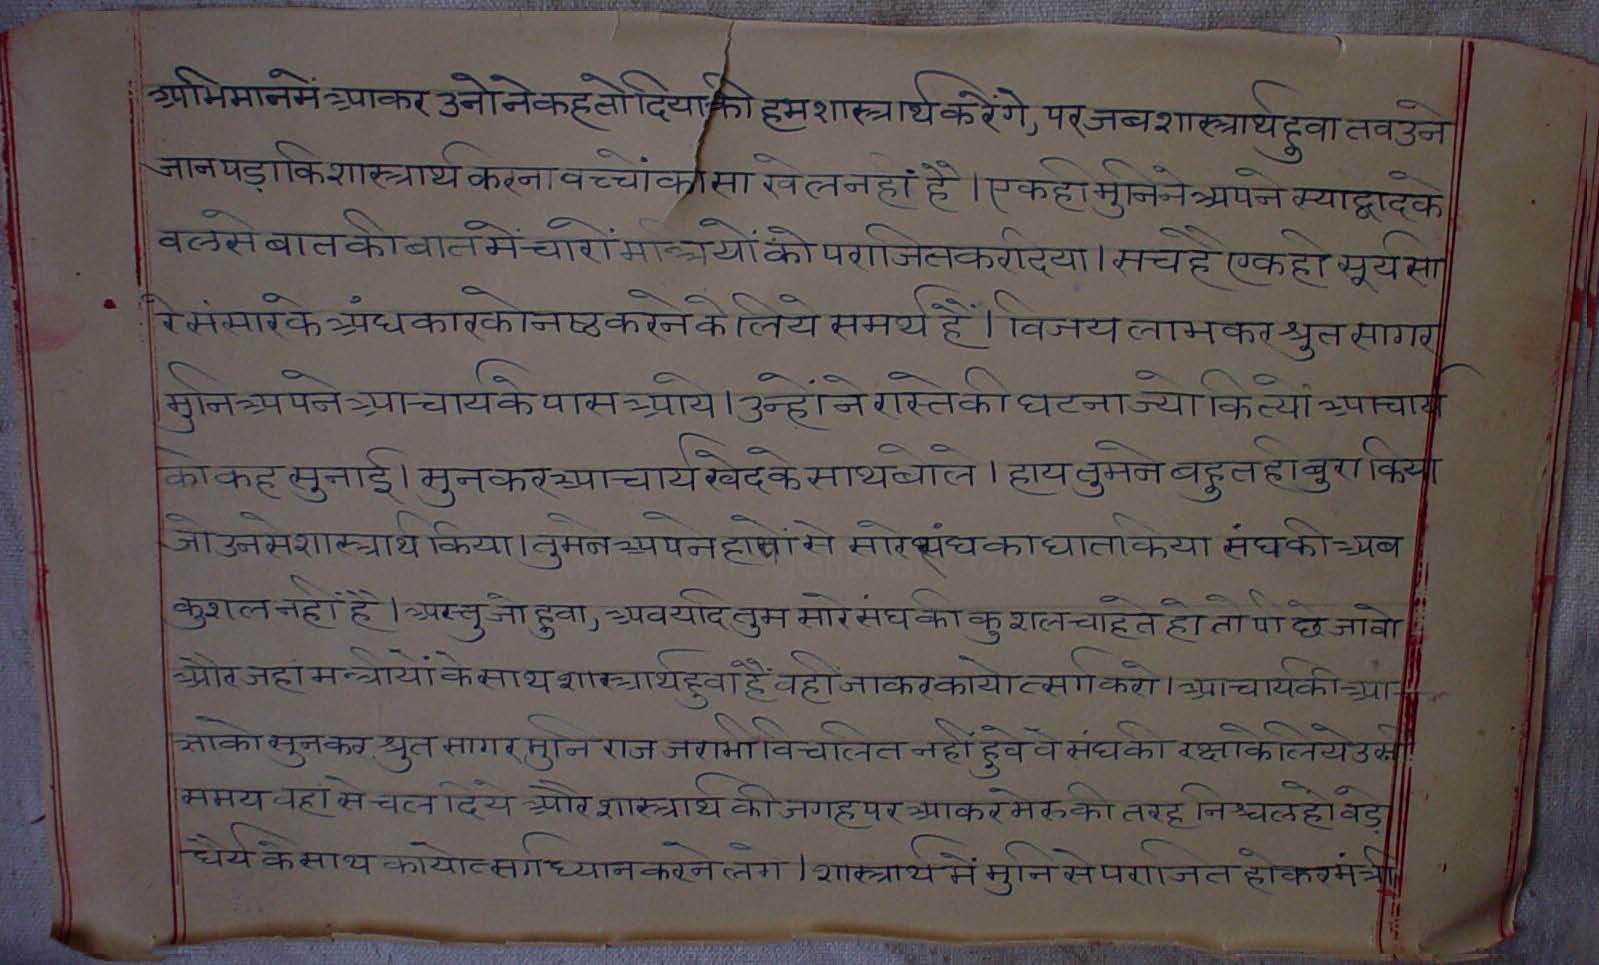 अभिमानमें आकर उनोने कह तो दिया की हम शास्त्रार्थ करेंगे, पर जब शास्त्रार्थ हुवा तव उने
जान पड़ा कि शास्त्रार्थ करना वच्चों का सा खेल नहीं है । एक ही मुनिने अपने स्याद्वाद के
वलसे बात की बात में चारों मन्त्रियों को पराजित कर दिया । सच है एक ही सूर्य सा
रे संसार के अंधकार को नष्ट करने के लिये समर्थ हैं । विजय लाभ कर श्रुत सागर
मुनि अपने आचार्य के पास आये । उन्होंने रास्ते की घटना ज्यो कि त्यों आचार्य
को कह सुनाई । सुन कर आचार्य खेद के साथ बोले । हाय तुमने बहुत ही बुरा किया
जो उनसे शास्त्रार्थ किया । तुमने अपने हाथों से सारे संघ का घात किया संघ की अब
कुशल नहीं है । अस्तु जो हुवा, अव यदि तुम सारे संघ की कुशल चाहते हो तो पीछे जावो
और जहां मन्त्रीयों के साथ शास्त्रार्थ हुवा हैं वहीं जाकर कायोत्सर्ग करो । आचार्य की आ-
ज्ञा को सुनकर श्रुत सागर मुनि राज जरा भी विचलित नहीं हुवे वे संघ की रक्षा के लिये उसी
समय वहां से चल दिये और शास्त्रार्थ की जगह पर आकर मेरु की तरह निश्चल हो वड़े
धैर्य के साथ कायोत्सर्ग ध्यान करने लगे । शास्त्रार्थ में मुनि से पराजित होकर मंत्री